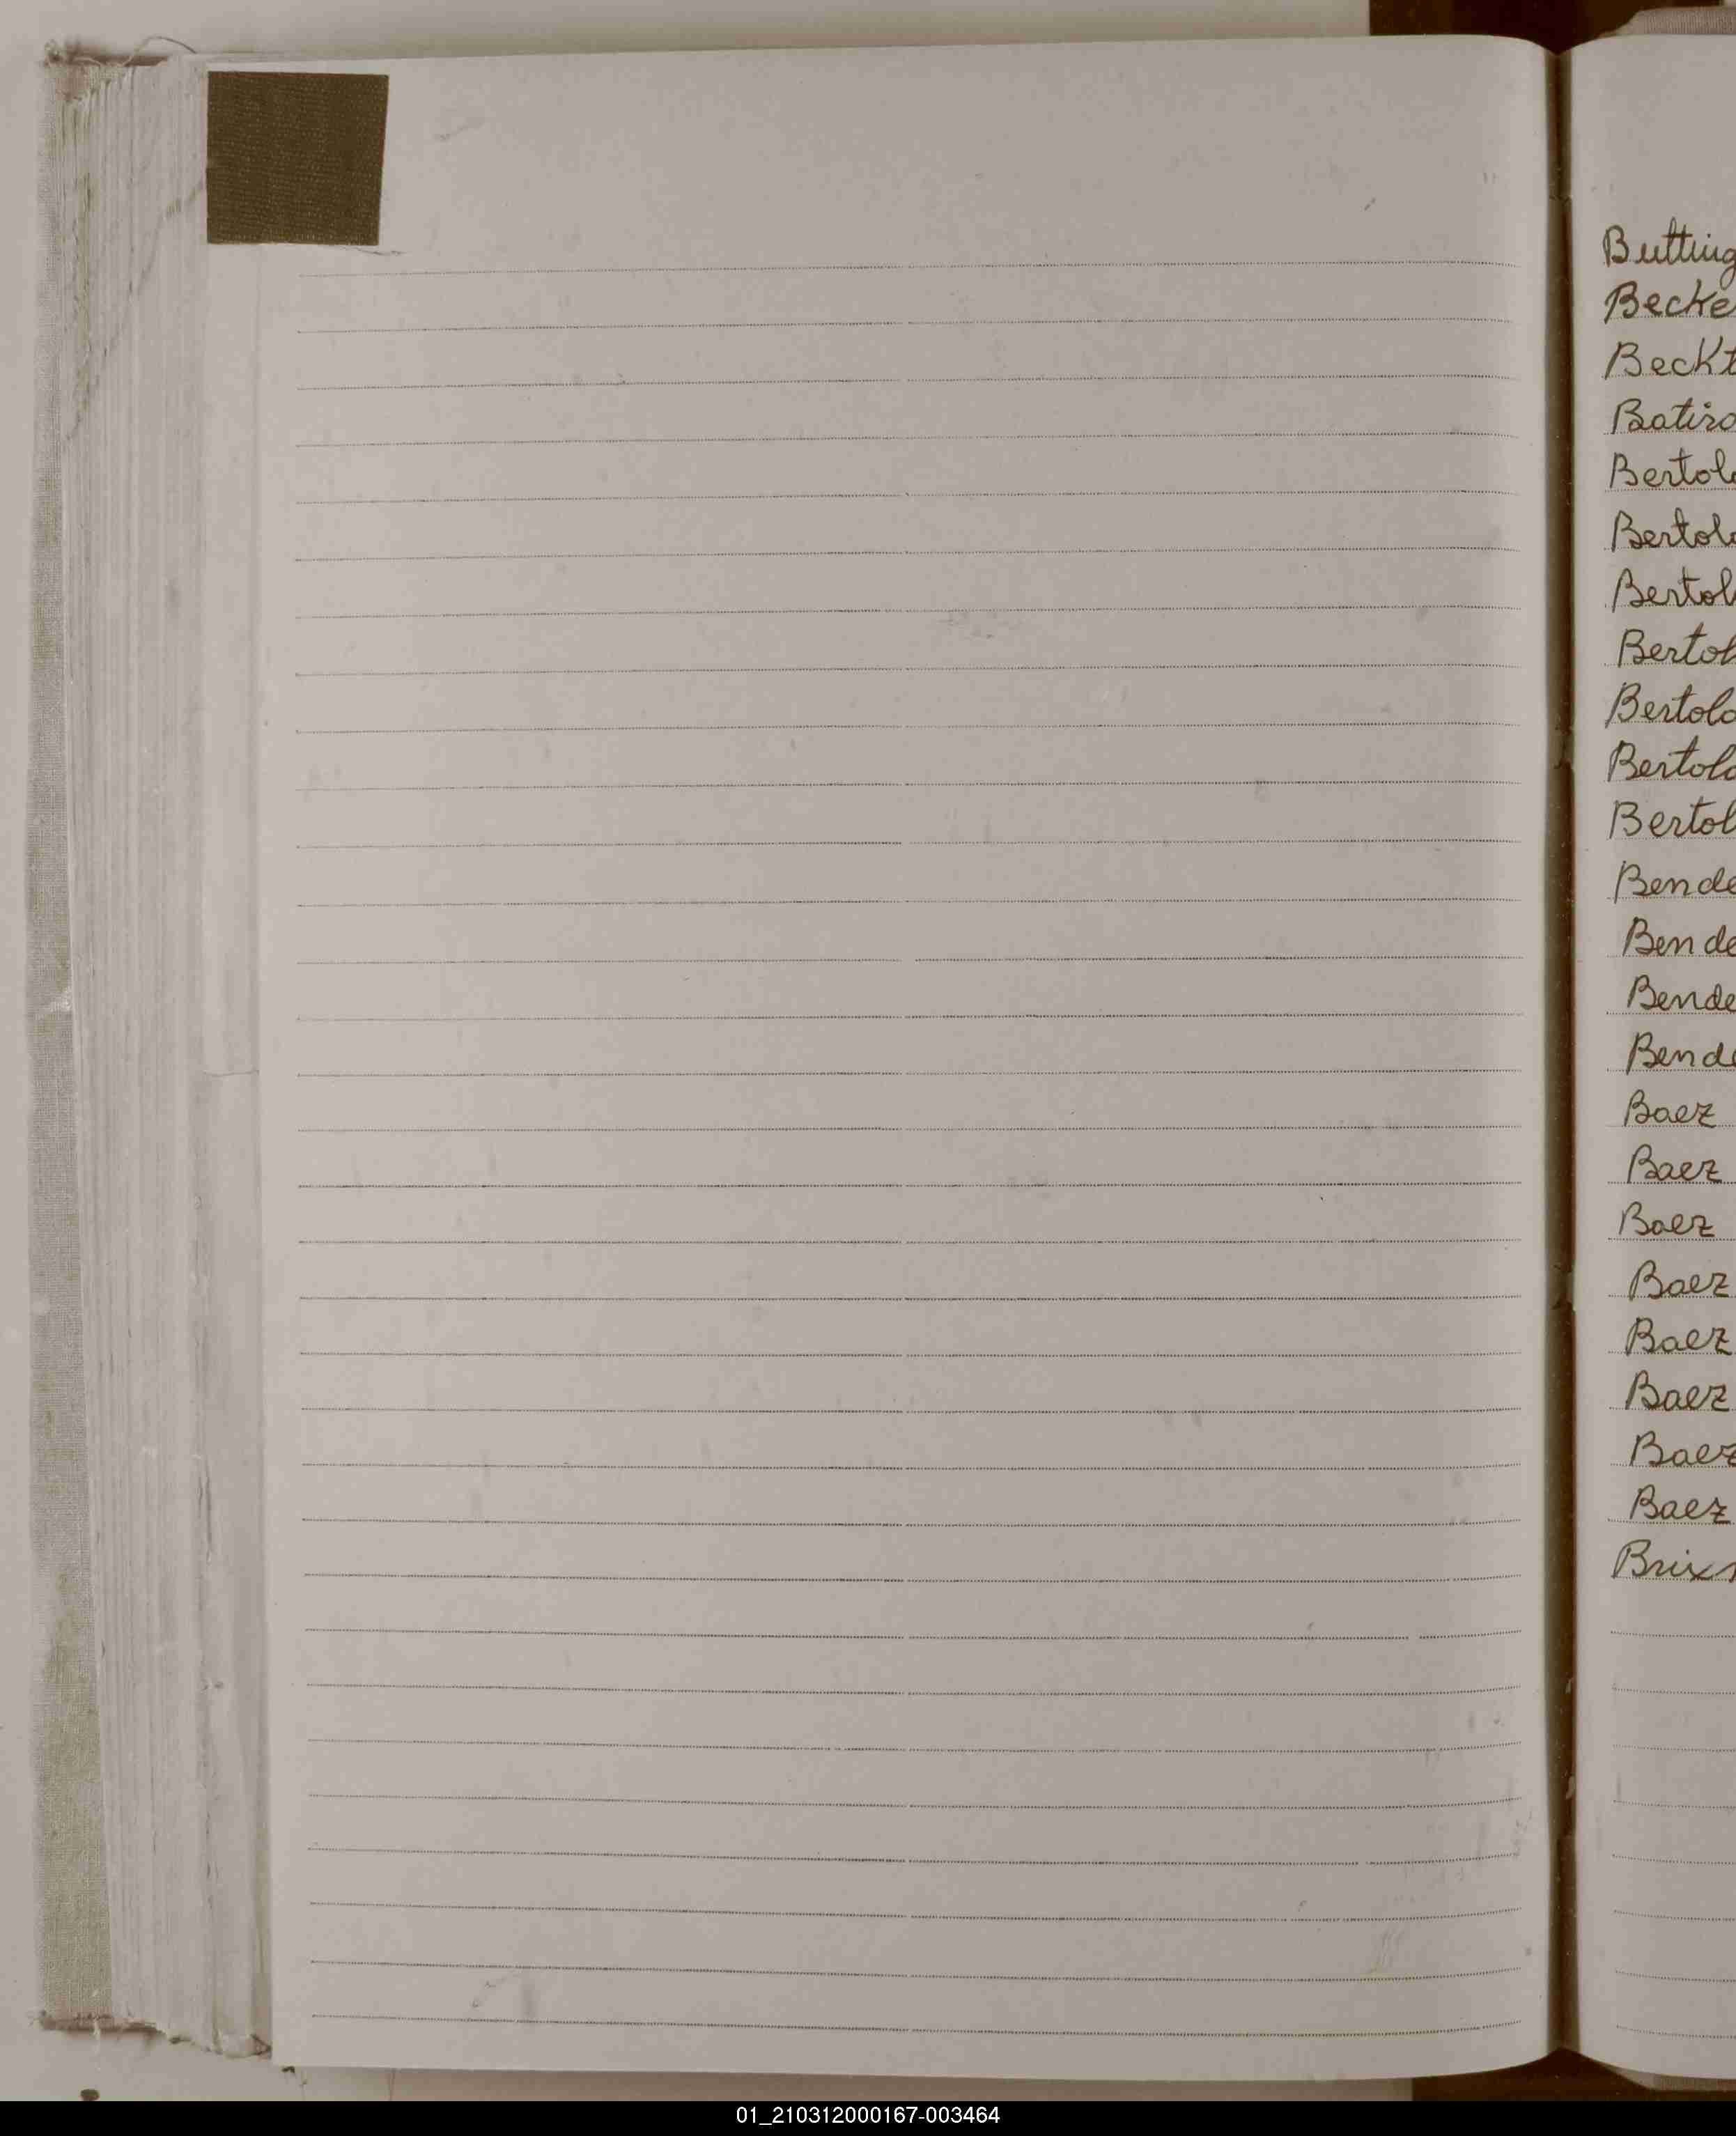 Butting
Becke
Beckt
Batis
Bertol
Bertol
Bertol
Bertol
Bertolo
Bertolo
Bertol
Bende
Bende
Bende
Bende
Baez
Baez
Baez
Baez
Baez
Baez
Baez
Baez
Brix
01_210312000167-003464